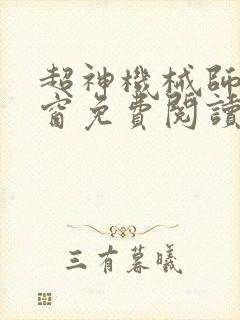 超神機械師
窗免費閱讀
三有暮曦